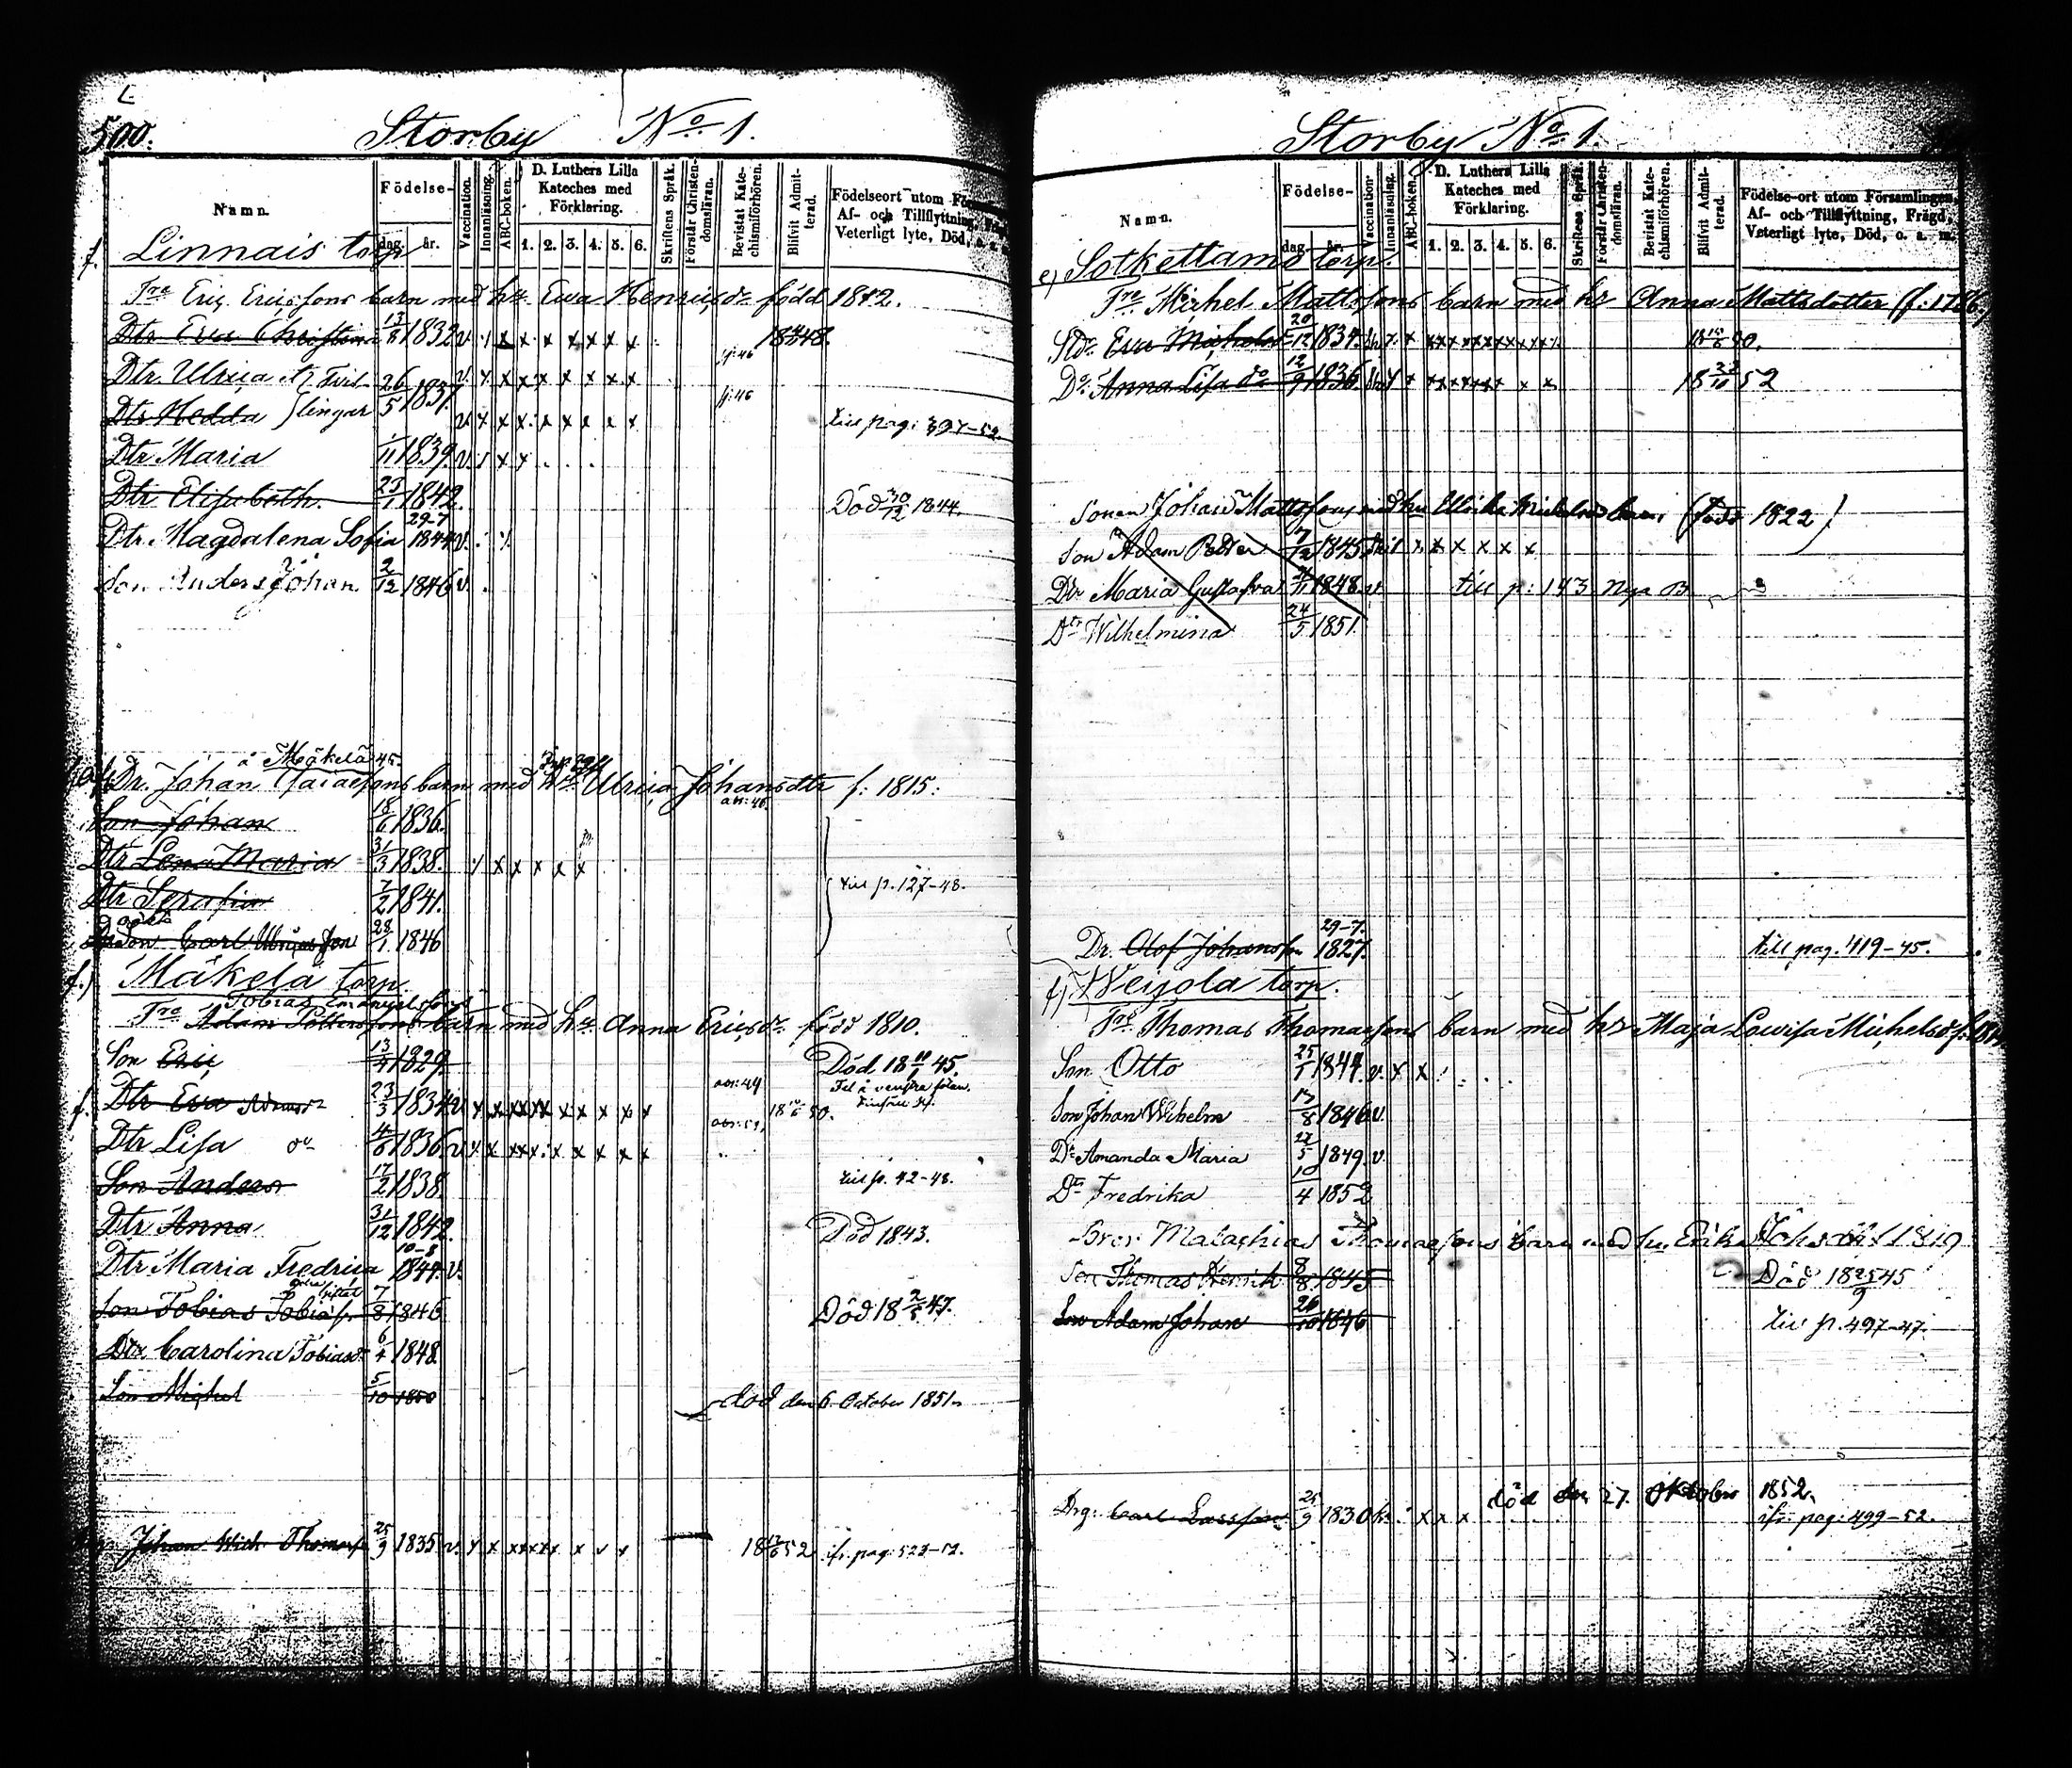 500.
Storby No 1.
Namn.
Födelse-
dag.
år.
Vaccination.
Innanläsning.
ABC-boken.
D. Luthers Lilla
Kateches med
Förklaring.
1. 2. 3. 4. 5. 6.
Skriftens Språk.
Förstår Christen-
domsläran.
Bevistat Kate-
chismiförhören.
Blifvit Admit-
terad.
Födelseort utom
Af- och Tillflyttning,
Veterligt lyte, Död,
f. Linnais torp
Tre Eric Ericssons barn med hu Ewa Henricsdr född 1812.
Dtr Eva Christina 13/8 1832 v. x x x x x x x 1848.
Dtr. Ulrica 26/5 1837. v. x x x x x x x x
Dtr Hedda lingar v x x x x x x x x till pag: 397-52.
Dtr Maria 1/11 1839. v. x x
Dtr Elisabeth. 23/1 1842. Död 30/12 1844.
Dtr. Magdalena Sofia 29-7 1844 v.
Son Anders Johan. 2/12 1846 v.
å Mäkelä 45.
Dr. Johan Isaacssons barn med hu Ulrica Johansdtr f: 1815:
Son Johan 18/6 1836.
Dtr Lena Maria 31/3 1838. x x x x x
Dtr Serafia 7/2 1841. till p. 127-48.
Son Carl 28/1 1846
f.) Mäkelä torp.
Tobias Emanuelssons
Tre Adam Pettersons barn med hu Anna Ericsdr född 1810.
Son Eric 13/4 1829. Död 18 11/1 45.
f. Dtr Eva Adamsdr 23/3 1834 v x x x x x x x x x 18 50.
Dtr Lisa 4/6 1836 v x x x x x x x x
Son Anders 17/2 1838. till p. 42-48.
Dtr Anna 31/12 1842. Död 1843.
Dtr Maria Fredrica 10-8 1844. v.
Son Tobias Tobiasson 7/8 1846 Död 18 47.
Dtr Carolina Tobiasdr 6/4 1848.
Son Michel 5/10 1850 död den 6 October 1851.
Johan Mich Thomass 25/9 1835 v. x x x x x x x 18 52 ifr. pag: 522-52.
Storby No 1.
Namn.
Födelse-
dag
år.
Vaccination.
Innanläsning.
ABC-boken.
D. Luthers Lilla
Kateches med
Förklaring.
1. 2. 3. 4. 5. 6.
Skriftens Språk.
Förstår Christen-
domsläran.
Bevistat Kate-
chismiförhören.
Blifvit Admit-
terad.
Födelse-ort utom Församlingen,
Af- och Tillflyttning, Frägd,
Veterligt lyte, Död, o. s. m.
e) Sotkettamo torp.
Tre Michel Mattssons barn med hr Anna Mattsdotter
Eva Michelsdr 20/12 1834 50.
Do Anna Lisa do 12/9 1836 18 52
Sonen Johan Mattssons med hu Ulrika barn (född 1822)
Son Adam Petter 7/12 1845 x x x x x
Dtr Maria Gustafva 1848 v. till p: 143 Nya B
Dtr Wilhelmina 24/5 1851.
Dr. Olof Johansson 29-7. 1827. till pag. 419-45.
f) Weijola torp.
Tre Thomas Thomassons barn med hr Maja Lowisa Michelsdr
Son Otto 25/1 1844. v. x x
Son Johan Wilhelm 17/8 1846 v.
Dr Amanda Maria 27/5 1849. v.
Dr Fredrika 10/4 1852
Bror Malachias Thomassons barn med hu Erika Johsdtr f 1819
Son Thomas Henrik 8/8 1845 Död 18 25/9 45
Son Adam Johan 26/10 1846 till p. 497-47.
Drg: Carl Larsson 25/9 1830 x x x död den 27. Oktober 1852.
ifr. pag: 499-52.